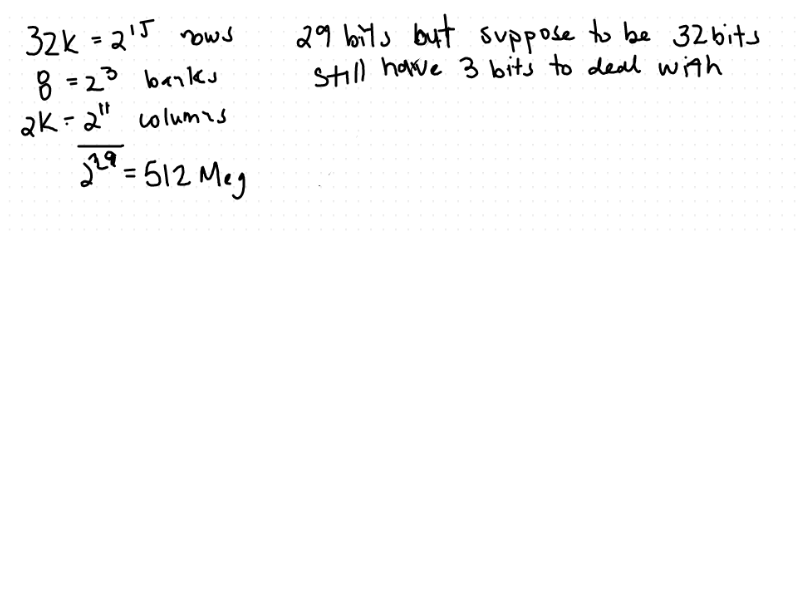 32K = 2^15 rows
8 = 2^3 banks
2K = 2^11 columns
2^29 = 512 Meg
29 bits but suppose to be 32 bits
still have 3 bits to deal with